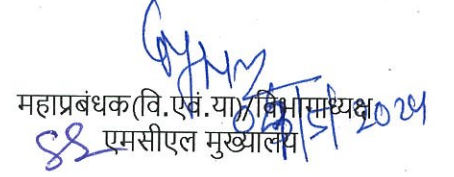 महाप्रबंधक(वि.एवं.या)/विभागाध्यक्ष
एमसीएल मुख्यालय